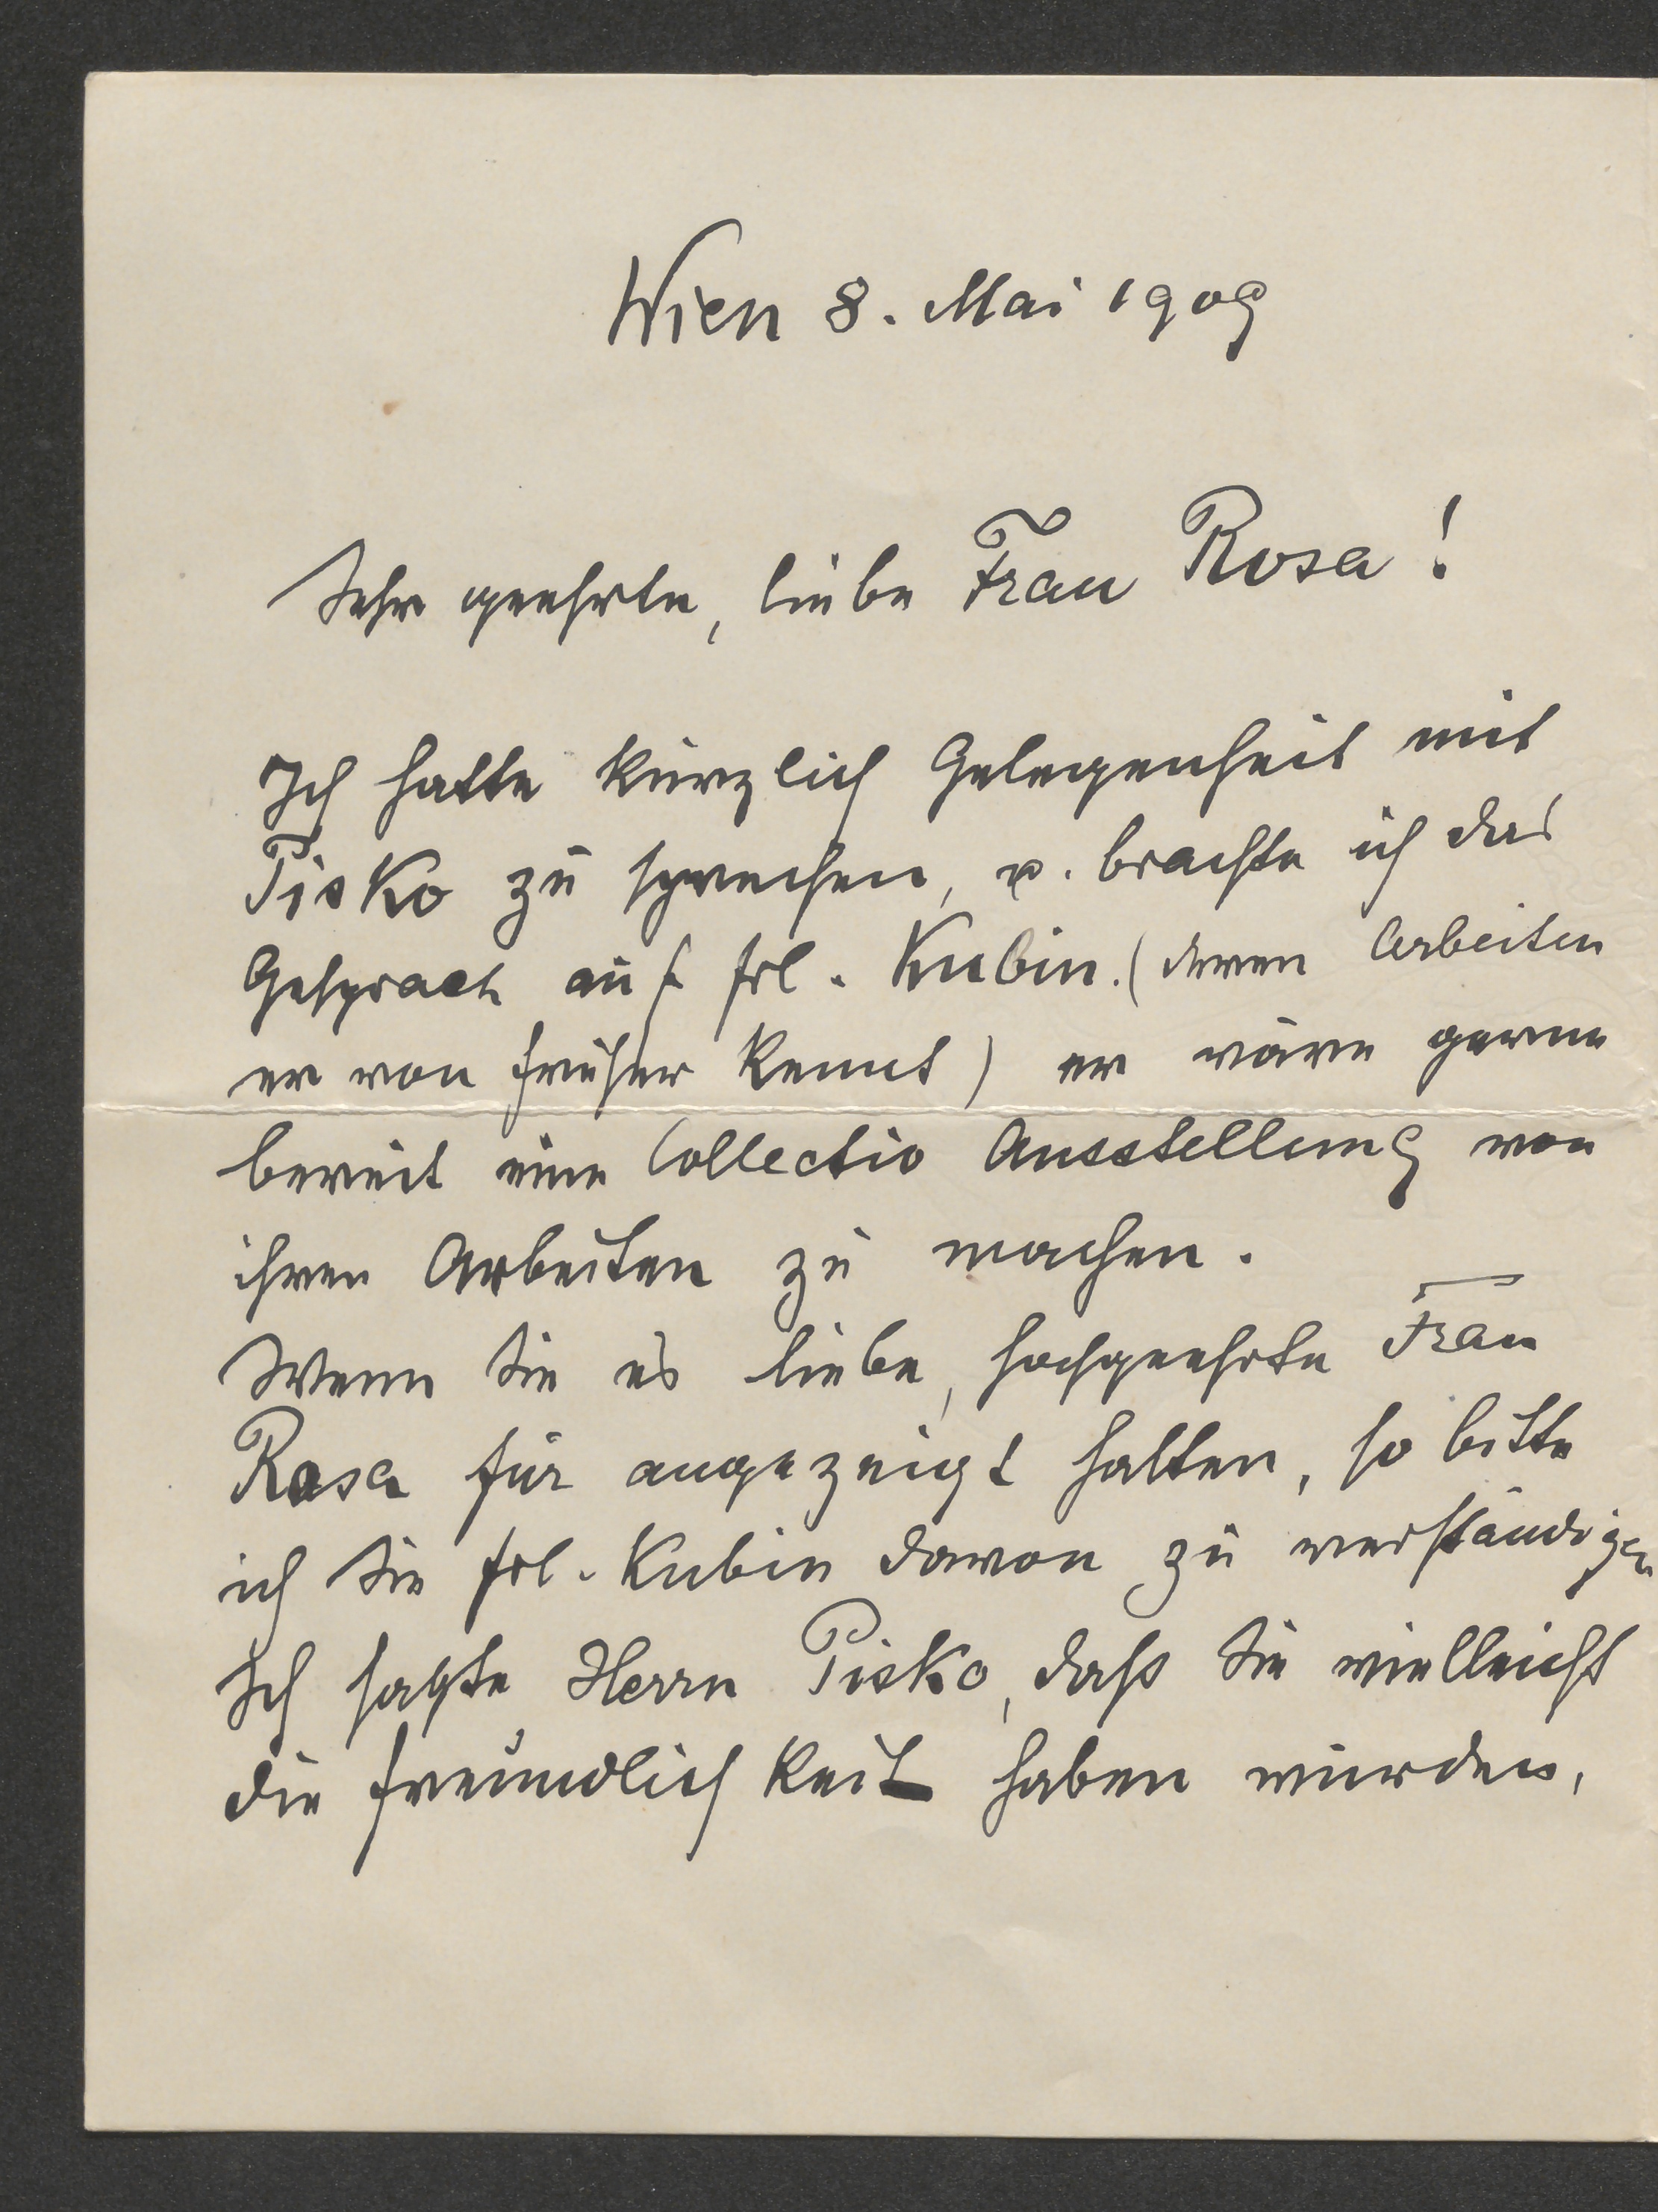 Wien 8. Mai 1909
Sehr geehrte, liebe Frau Rosa!
Ich hatte kürzlich Gelegenheit mit
Pisko zu sprechen, u. brachte ich das
Gesprach auf Frl. Kubin. (deren Arbeiten
er von früher kennt) er wäre gerne
bereit eine Collectiv Ausstellung von
ihren Arbeiten zu machen.
Wenn Sie es liebe, hochgeehrte Frau
Rosa für angezeigt halten, so bitte
ich Sie Frl. Kubin davon zu verständigen
Ich sagte Herrn Pisko, daß Sie vielleicht
die Freundlichkeit haben würden,